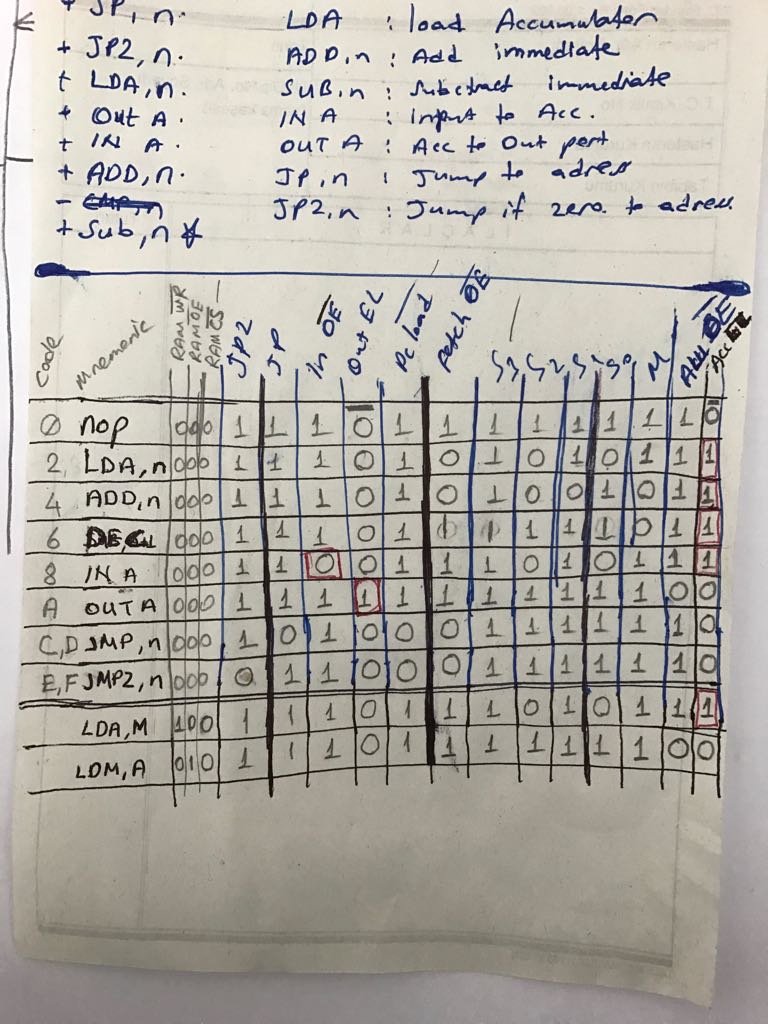 + JP, n. LDA : load Accumulator
+ JP2, n. ADD, n : Add immediate
+ LDA, n. SUB, n : Subctract immediate
+ Out A. IN A : input to Acc.
+ IN A. OUT A : Acc to Out port
+ ADD, n. JP, n : Jump to adress
- CMP, n JP2, n : Jump if zero to adress
+ Sub, n
Code Mnemonic RAM WR RAM OE RAM CS JP2 JP In OE Out EL Pc load Fetch OE S3 S2 S1 S0 M OE Acc
0 nop 0 0 0 1 1 1 0 1 1 1 1 1 1 1 1 0
2 LDA, n 0 0 0 1 1 1 0 1 0 1 0 1 0 1 1 1
4 ADD, n 0 0 0 1 1 1 0 1 0 1 0 0 1 0 1 1
6 0 0 0 1 1 1 0 1 1 1 1 0 1 1
8 IN A 0 0 0 1 1 0 0 1 1 1 0 1 0 1 1 1
A OUT A 0 0 0 1 1 1 1 1 1 1 1 1 1 1 0 0
C, D JMP, n 0 0 0 1 0 1 0 0 0 1 1 1 1 1 1 0
E, F JMP2, n 0 0 0 0 1 1 0 0 0 1 1 1 1 1 1 0
LDA, M 1 0 0 1 1 1 0 1 1 1 0 1 0 1 1 1
LDM, A 0 1 0 1 1 1 0 1 1 1 1 1 1 1 0 0